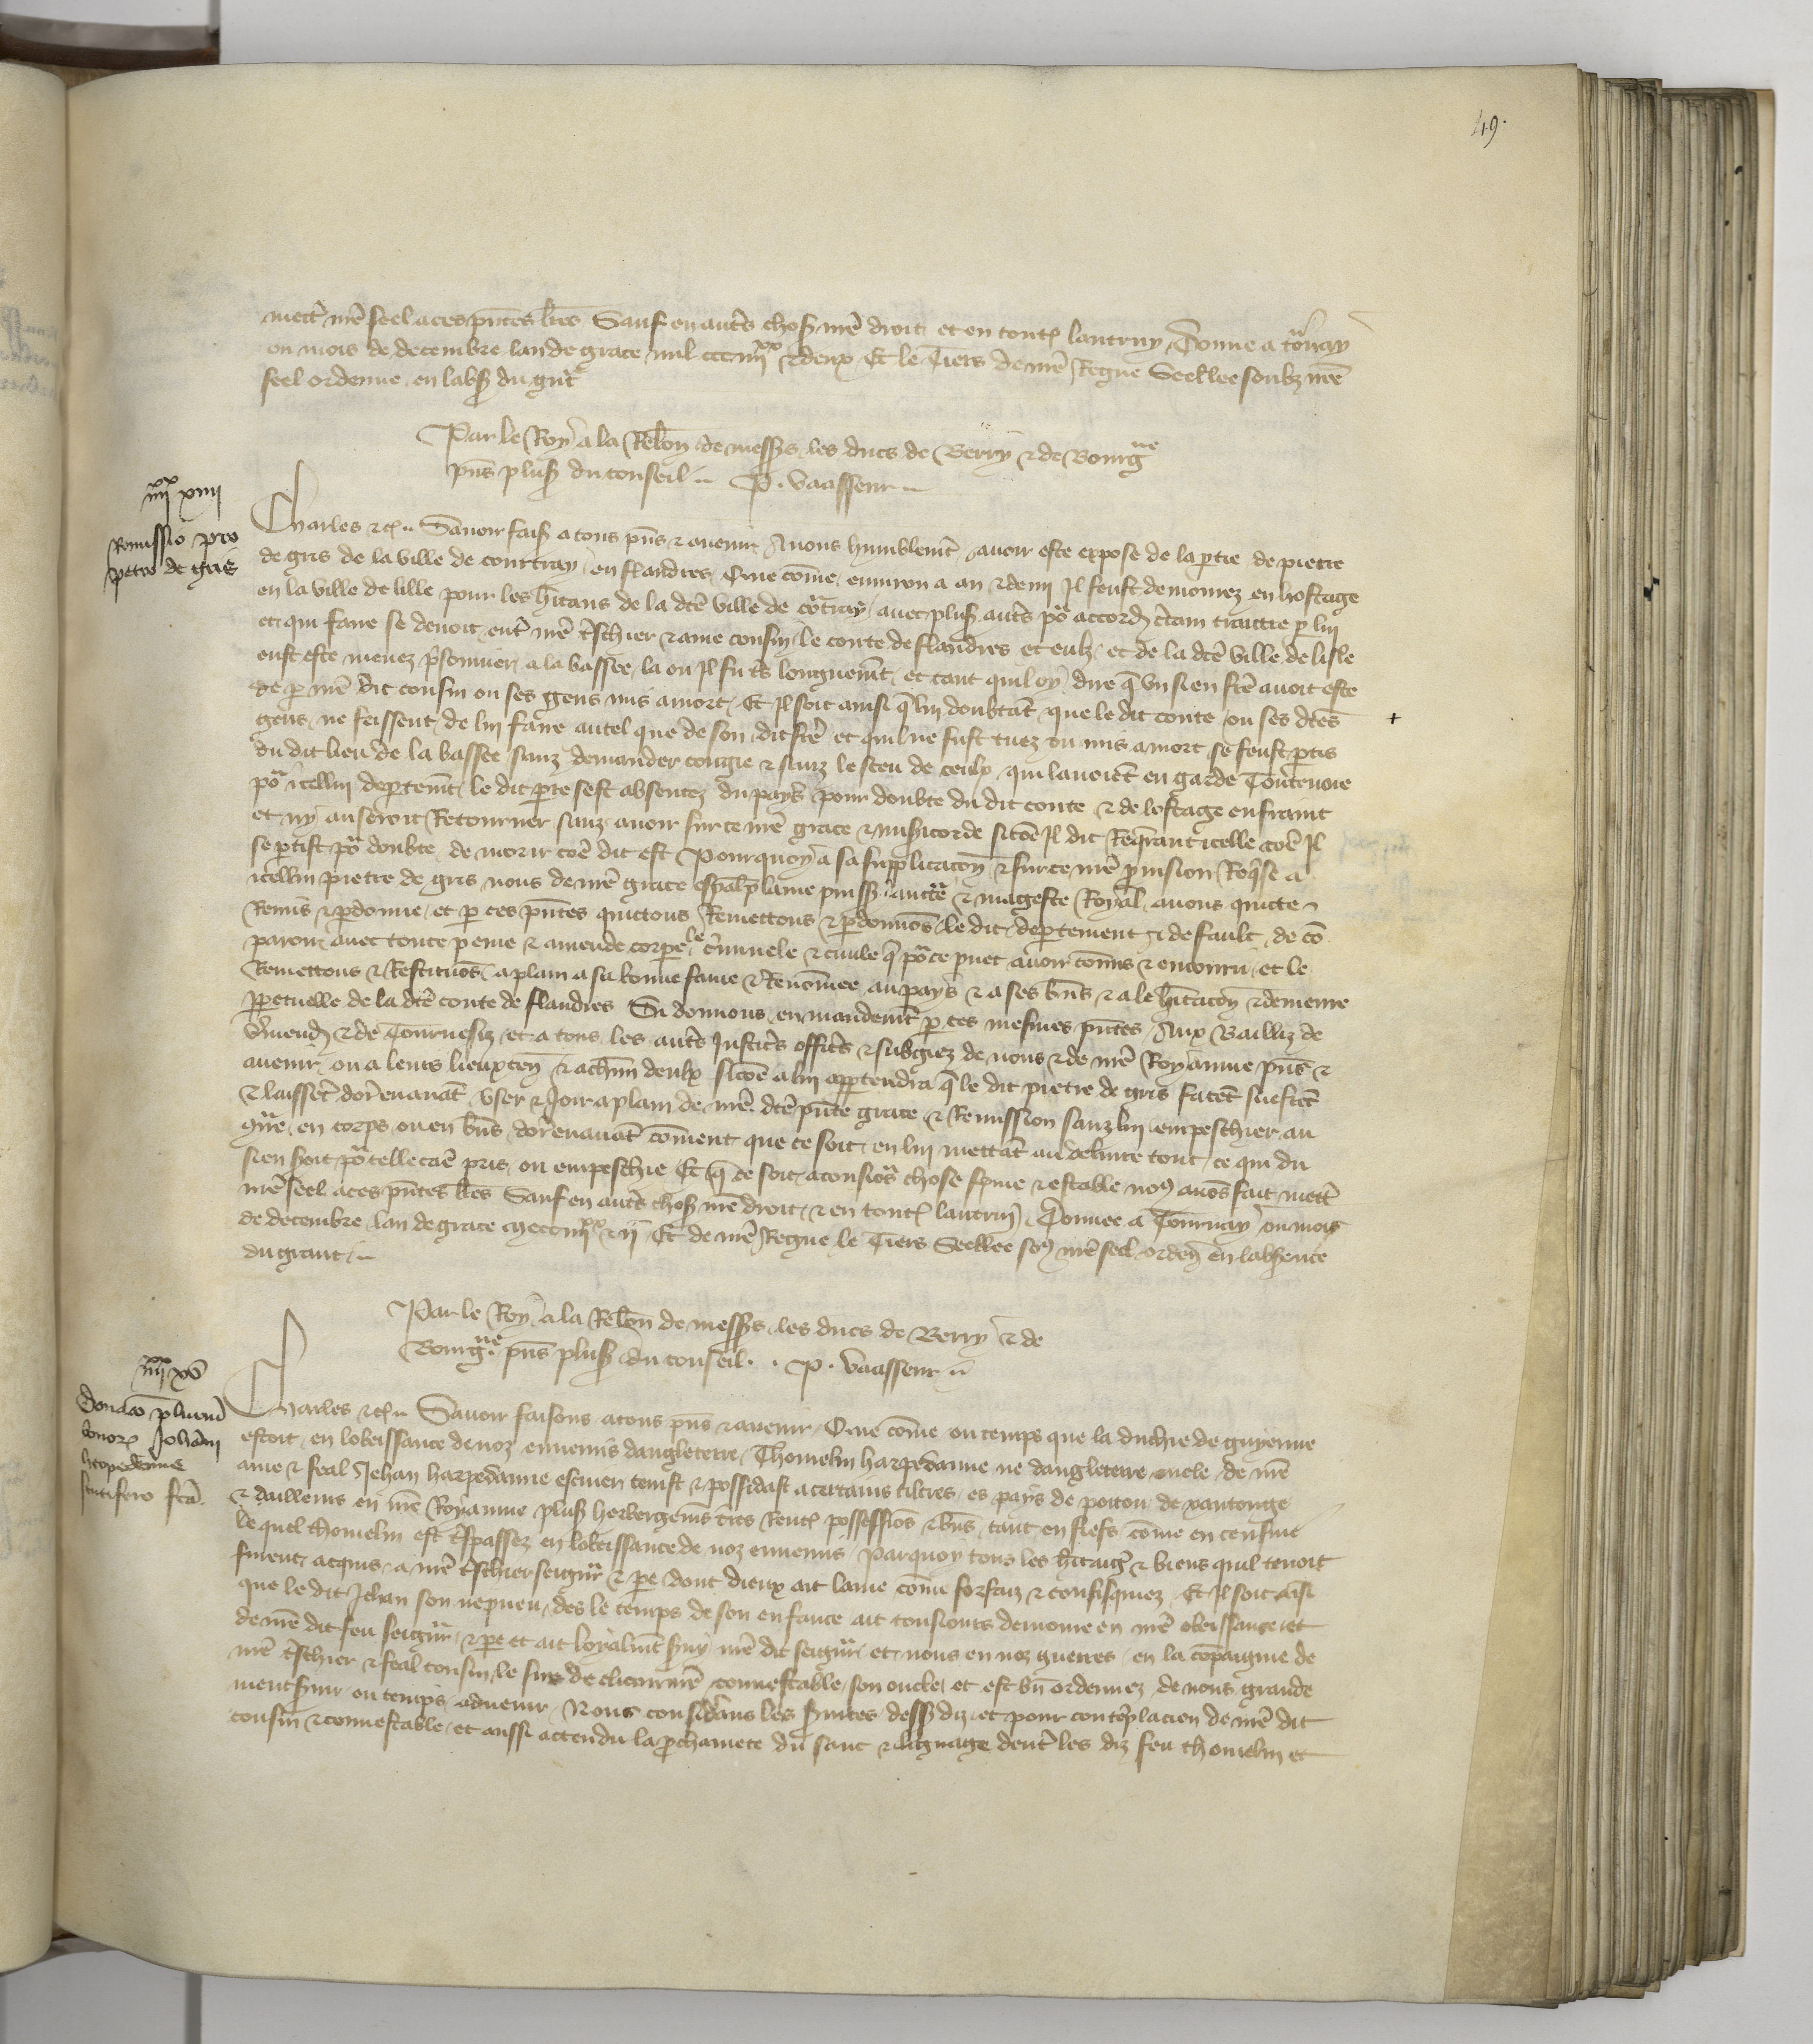 49.
mettr̃ nr̃e seel a ces p̃ntes lr̃es Sauf en autr̃s chos̃ nr̃e droit et en toutꝭ lautruy Donne a to̾nay
ou mois de decembre lan de grace mil ccc iiiixx et deux Et le Tiers de nr̃e Regne Seellee soubz nr̃e
seel ordenne en labs̃ du gñt
Par le Roy a la Relõn de mess̃rs les ducs de Berry et de Bourg̃ne
p̃ns plus̃ du conseil P. Vaasseur
iiiixx xiiii
Remissio pro
petro de gris
Charles etc̃ Sauoir fais̃ a tous p̃ns et auenir Auons humblemt̃ auoir este expose de la ptie de pietre
de gris de la ville de courtray en flandres Que cõme enuiron a an et demi Il feust demourez en hostage
en la ville de lille pour les hĩtans de la dcẽ ville de co̾tray auec plus̃ autr̃s po̾ accord c̃tain traittie p lui
et qui faire se deuoit entr̃ nr̃e tr̃schier et ame cousin le conte de flandres et eulx et de la dcẽ ville de lisle
eust este menez p̃sonnier a la bassee la ou Il fu tr̃s longuemt̃ et tant quil oy dire q̃ vn sien frẽ auoit este
de p nr̃e dit cousin ou ses gens mis a mort Et Il soit ainsi q̃ lui doubtãt que le dit conte ou ses dc̃es
gens ne feissent de lui faire autel que de son dit frẽ et quil ne fust tuez ou mis a mort se feust ptis
du dit lieu de la bassee sanz demander congie et sanz le sceu de ceulx qui lauoiẽt en garde Touteuoie
po̾ icellui deptemt̃ le dit pietre sest absentez du pays pour doubte du dit conte et de lostage enfraint
et ny auseroit Retourner sanz auoir sur ce nr̃e grace et mis̃icorde si cõe Il dit Req̃rant icelle cõe Il
se ptist po̾ doubte de morir cõe dit est Pourquoy a sa supplicaciõn et sur ce nr̃e prouision Req̃se a
icellui pietre de gris nous de nr̃e grace esp̃al plaine puiss̃ auctẽ et mageste Royal auons quicte
Remis et pdonne et p ces p̃ntes quictons Remettons et pdonnõs le dit deptement et default de cõ
paroir auec toute peine et amende corpele c̃minele et ciuile q̃ po̾ ce puet auoir cõmis et encouru et le
Remettons et Restituõs a plain a sa bonne fame et Renõmee au pays et a ses biñs et a le hĩtaciõn et demeure
ppetuelle de la dcẽ conte de flandres Si donnons en mandemt̃ p ces mesmes p̃ntes Aux Bailliz de
v̾mend̃ et de Tournesiz et a tous les autr̃s Justic̃s offic̃s et subgiez de nous et de nr̃e Royaume p̃ns et
auenir ou a leurs lieuxteñ et a ch̃un deulx si cõe a lui apptendra q̃ le dit pietre de gris facẽt sueffrẽt
et laissẽt dorenauãt vser et Joir a plain de nr̃e dcẽ p̃nte grace et Remission sanz lui empeschier au
9tr̃re en corps ou en biñs dorenauãt cõment que ce soit en lui mettãt au deliure tout ce qui du
sien soit po̾ telle cãe pris ou empeschie Et q̃ ce soit a tousio̾s chose ferme et estable no9 auõs fait mettr̃
nr̃e seel a ces p̃ntes lr̃es Sauf en autr̃s chos̃ nr̃e droit et en toutꝭ lautruy Donnee a Tournay ou mois
de decembre lan de grace mcccciiiixx et ii Et de nr̃e Regne le Tiers Seellee so9 nr̃e seel ordeñ en labsence
du grant
Par le Roy a la Relõn de mess̃rs les ducs de Berry et de
Bourg̃ne p̃ns plus̃ du conseil. P. Vaasseur
iiiixx xv
Donacio plurimũ
bonorꝭ Johãni
harpedenne
scutifero fcã.
Charles etc̃ Sauoir faisons a tous p̃ns et auenir Que cõme ou temps que la duchie de guyenne
estoit en lobeissance de noz ennemis dangleterre Thomelin harpedanne ne dangleterre oncle de nr̃e
ame et feal Jehan harpedanne escuier tenist et possidast a certains tiltres es pays de poitou de xantonge
et dailleurs en nr̃e Royaume plus̃ herbergemẽs tr̃res Rentꝭ possessiõs et biñs tant en fiefs cõme en censiue
le quel thomelin est tr̃spassez en lobeissance de noz ennemis parquoy tous les hĩtaig̃ et biens quil tenoit
furent acquis a nr̃e tr̃schier seigñr et pe dont dieux ait lame cõme forfaiz et confisquiez Et Il soit aĩsi
que le dit Jehan son nepueu des le temps de son enfance ait tousiours demoure en nr̃e obeissance et
de nr̃e dit feu seigñr et pe et ait loyalmt̃ s̃ui nr̃e dit seigñr et nous en noz guerres en la cõpaignie de
nr̃e tr̃schier et feal cousin le sire de clicon nr̃e connestable son oncle et est biñ ordennez de nous grande
ment s̃uir ou temps aduenir Nous considerans les s̃uices dess̃ diz et pour contẽplacion de nr̃e dit
cousin et connestable et aussi attendu la p̃chainete du sanc et lignage dentr̃ les diz feu thomelin et